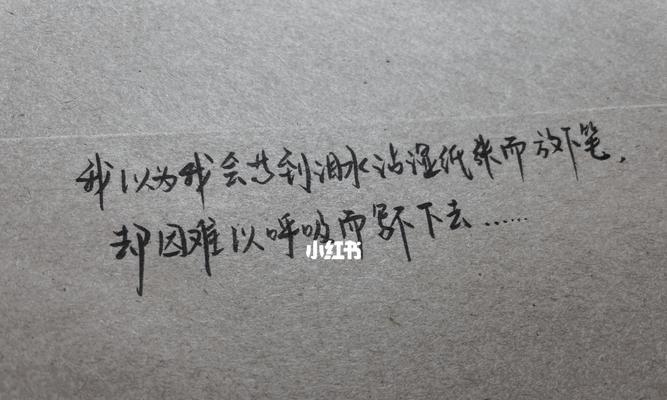 我以为我会苦到泪水沾湿纸张而放下笔，
却因难以呼吸而写不下去……
小红书